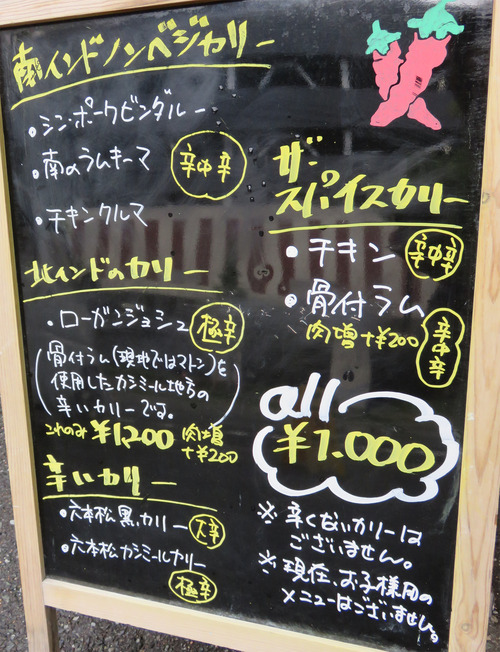 南インドノンベジカリー
・シン・ポークビンダルー
・南のラムキーマ
辛中辛
・チキンクルマ
北インドのカリー
・ローガンジョシュ
極辛
(骨付ラム(現地ではマトン)を
使用したカシミール地方の
辛いカリーです。)
これのみ ¥1,200 肉増
+¥200
辛いカリー
・六本松黒カリー
大辛
・六本松カシミールカリー
極辛
ザ・
スパイスカリー
・チキン
辛中辛
・骨付ラム
肉増+¥200
辛中辛
all
¥1.000
※辛くないカリーは
ございません。
※現在、お子様用の
メニューはございません。